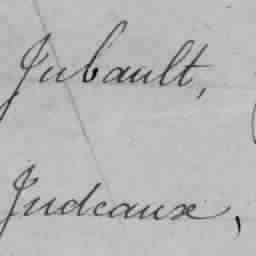 Jubault,
Judeaux,